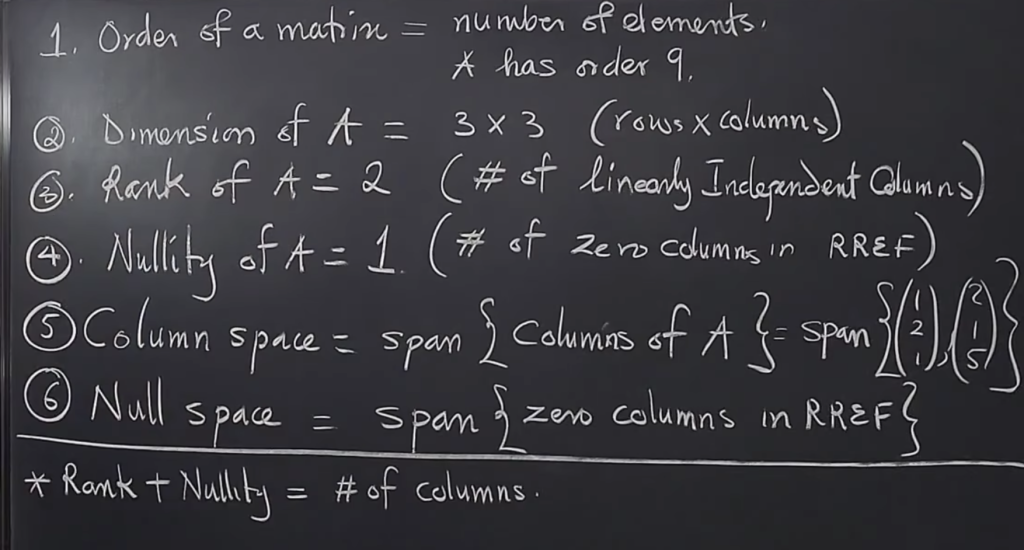 1. Order of a matrix = number of elements.
A has order 9.
②. Dimension of A = 3 x 3 (rows x columns)
③. Rank of A = 2 (# of linearly Independent Columns)
④. Nullity of A = 1. (# of zero columns in RREF)
⑤ Column space = span { Columns of A } = span {(1 2 1), (2 1 5)}
⑥ Null space = span { zero columns in RREF }
* Rank + Nullity = # of columns.